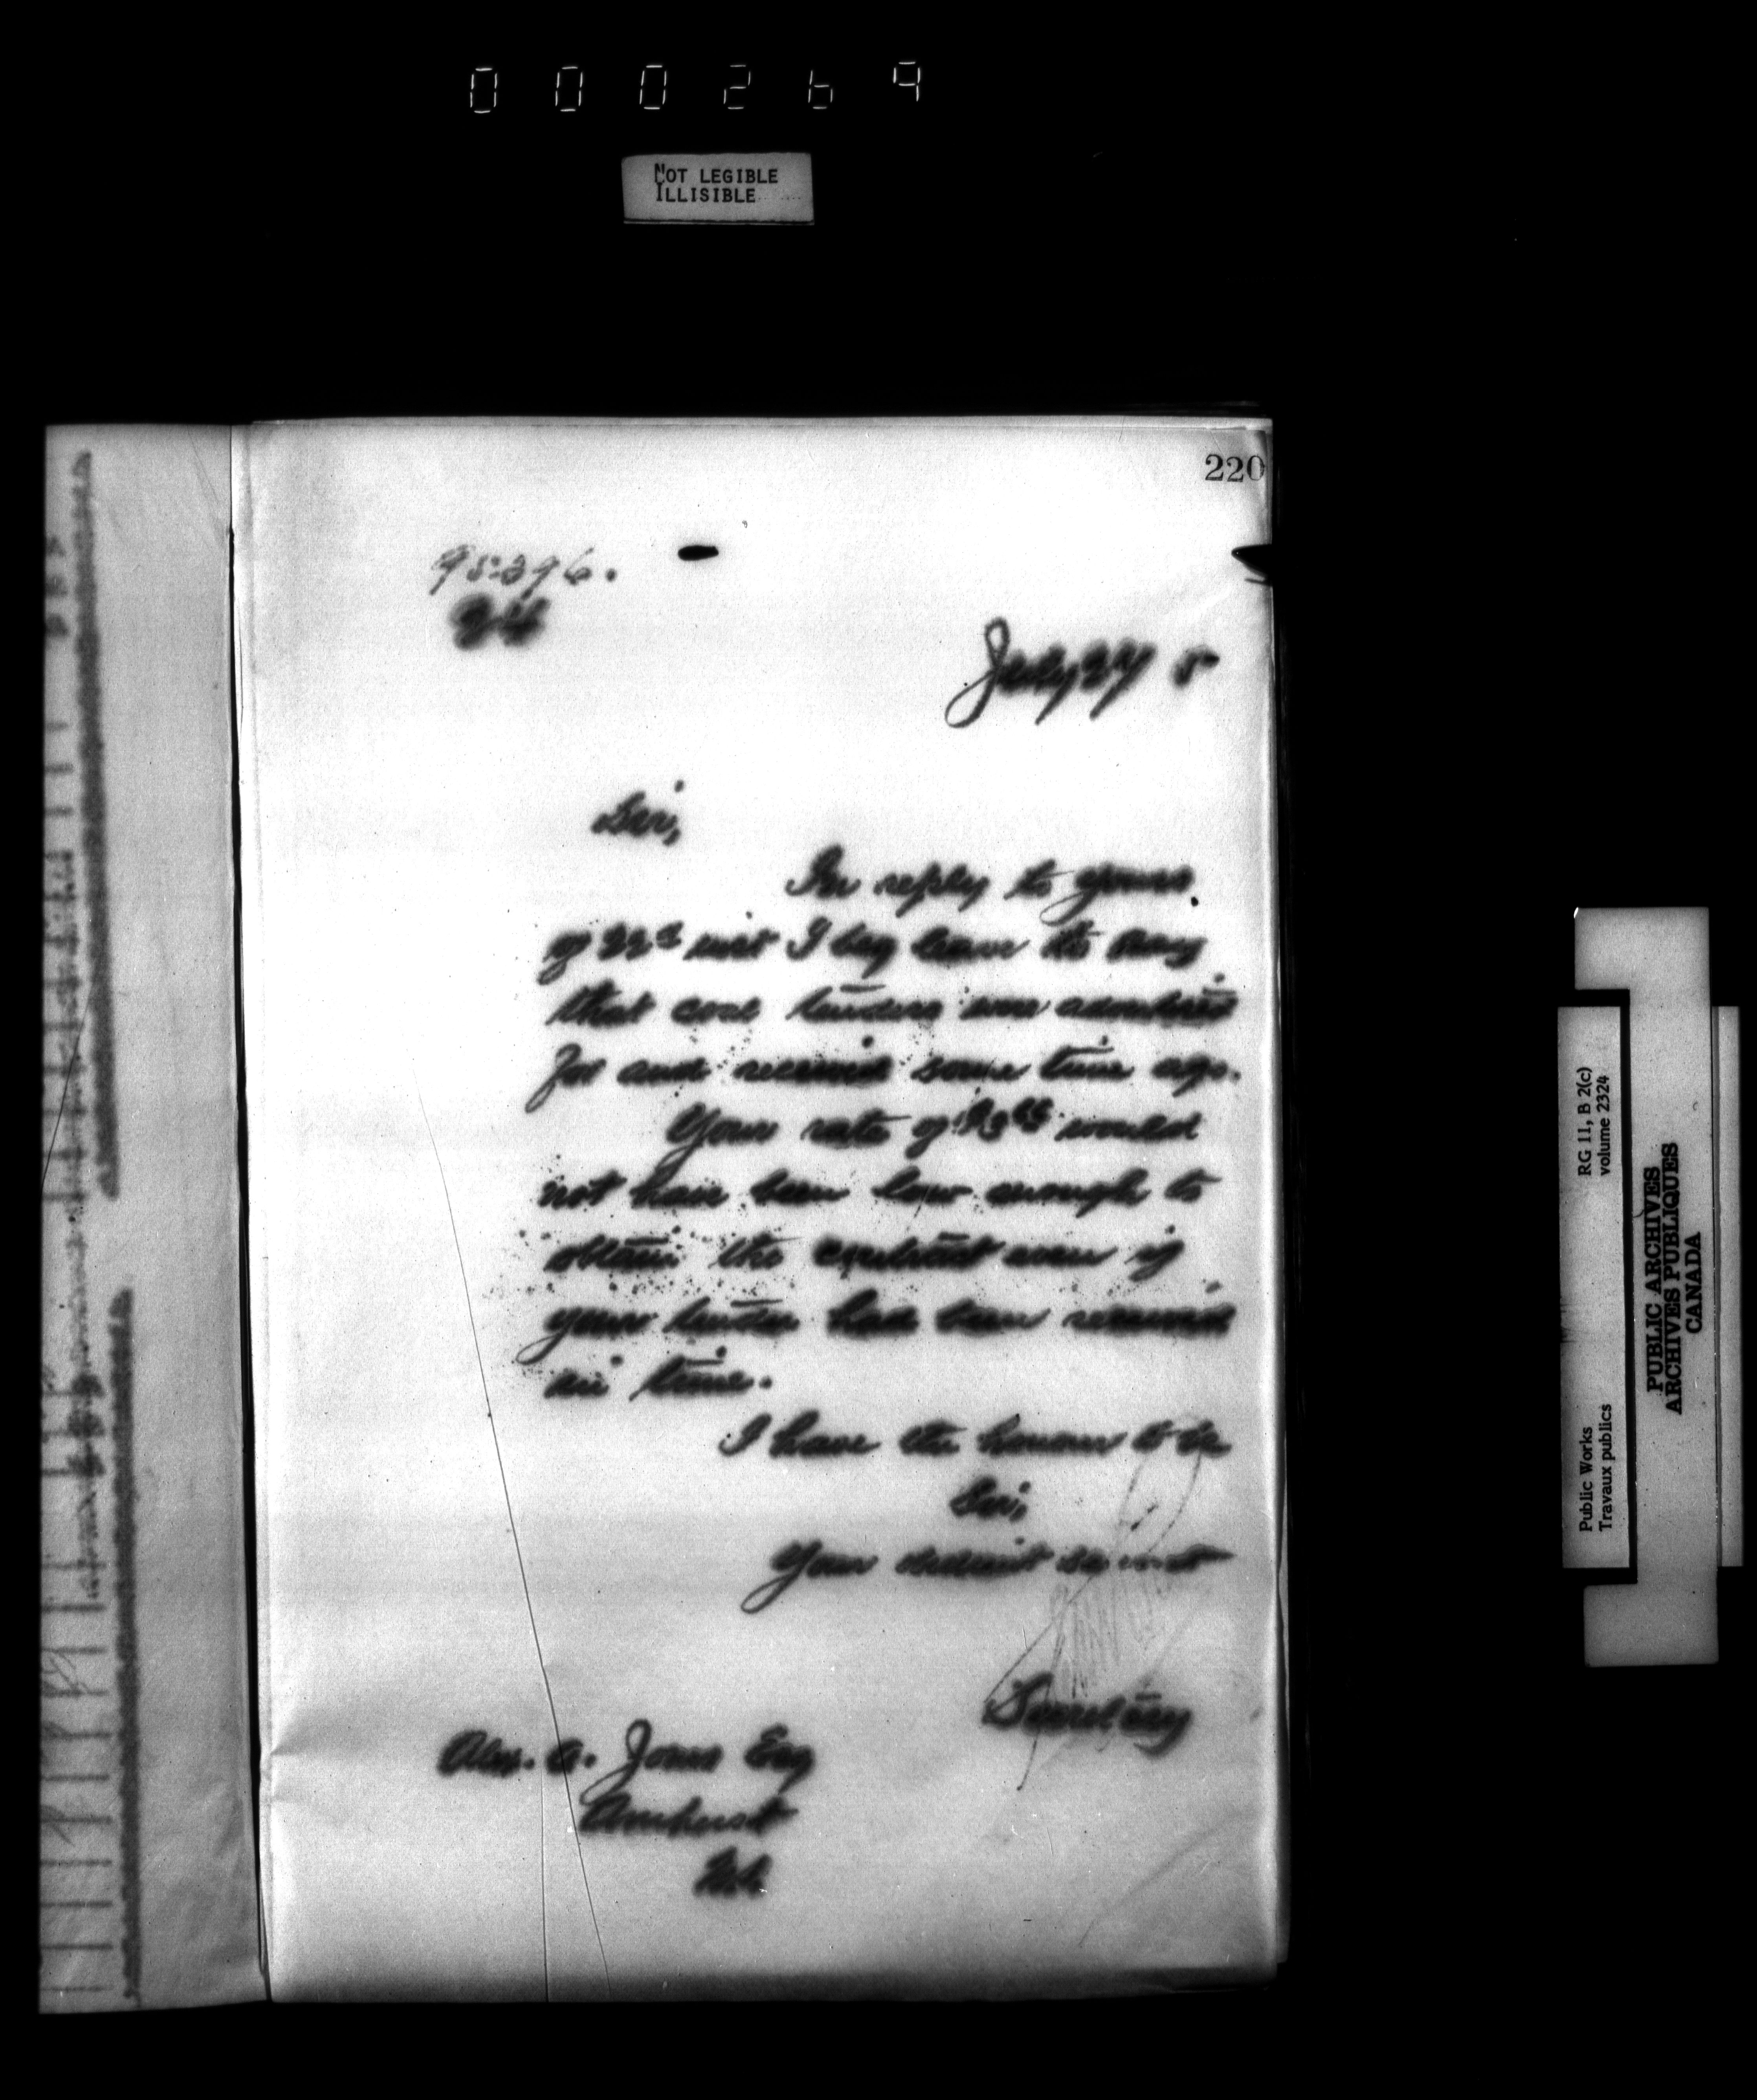 000269
NOT LEGIBLE
ILLISIBLE
220
95396.
July 27 5
Sir,
In reply to yours
of 22d inst I beg leave to say
that coal tenders were advertised
for and received some time ago.
Your rate of would
not have been low enough to
obtain the contract even if
your tender had been received
in time.
I have the honour to be
Sir,
Your obedient servant
Secretary
Alex. A. Jones Esq
Amherst
N.S.
Public Works
Travaux publics
RG 11, B 2(c)
volume 2324
PUBLIC ARCHIVES
ARCHIVES PUBLIQUES
CANADA